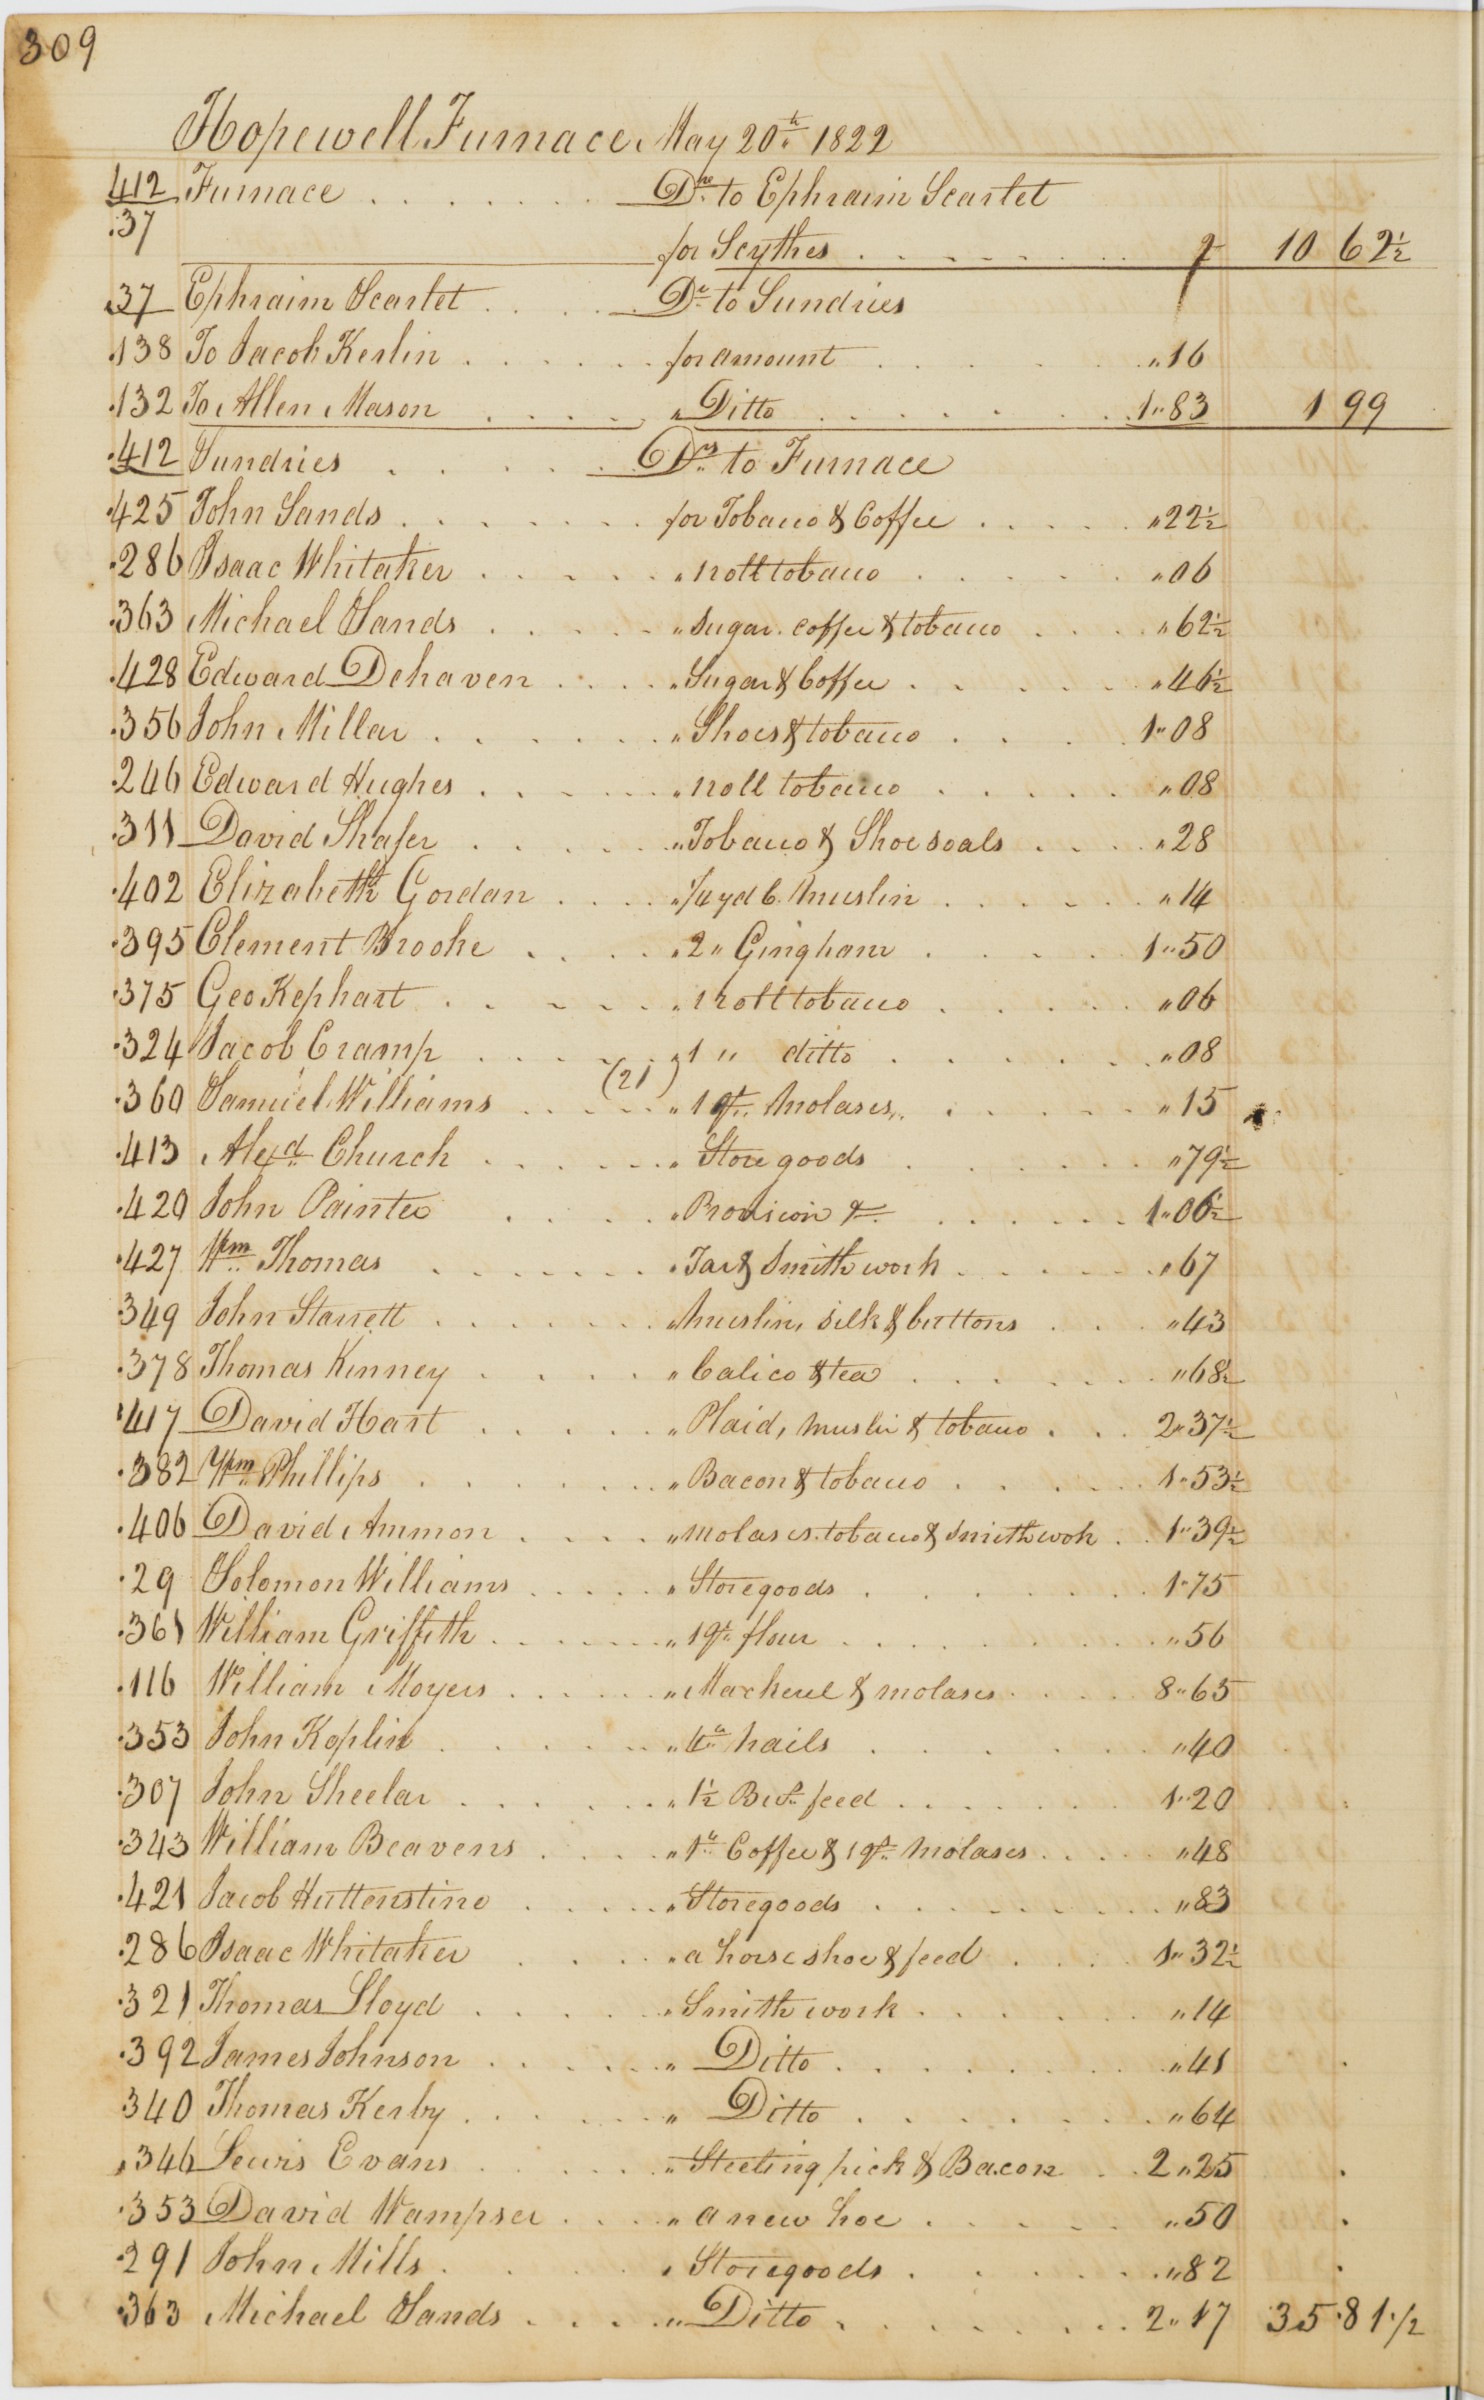 309
Hopewell Furnace May 20th 1822
412 Furnace . . . . . . . Dr to Ephraim Scarlet
37 for Scythes . . . . . . . 10 62½
37 Ephraim Scarlet . . . . Dr to Sundries
138 To Jacob Kerlin . . . . . for amount . . . . . " 16
132 To Allen Mason . . . . . " Ditto . . . . . . 1" 83 1 99
412 Sundries . . . . . Drs to Furnace
425 John Sands . . . . . . . for Tobacco & Coffee . . . . . " 22½
286 Isaac Whitaker . . . . . " 1 roll tobacco . . . . . " 06
363 Michael Sands . . . . . " Sugar. Coffee & tobacco . . . . " 62½
428 Edward Dehaven . . . . " Sugar & Coffee . . . . . " 46½
356 John Millar . . . . . . " Shoes & tobacco . . . . 1" 08
246 Edward Hughes . . . . . " 1 roll tobacco . . . . . " 08
311 David Shafer . . . . . " Tobacco & Shoe soals . . . . " 28
402 Elizabeth Gordan . . . . " ¾ yd C. Muslin . . . . . " 14
395 Clement Brooke . . . . " 2 " Gingham . . . . 1" 50
375 Geo Kephart . . . . . " 1 roll tobacco . . . . . " 06
324 Jacob Cramp . . . . . " 1 " ditto . . . . . . " 08
360 Samuel Williams . . . (21) . . " 1 qt. Molases . . . . . . " 15
413 Alexd Church . . . . . . " Store goods . . . . . " 79½
420 John Painter . . . . " Provision &c. . . . . . . 1" 06½
427 Wm Thomas . . . . . . . " Tar & Smith work . . . . . . " 67
349 John Starrett . . . . . . . " Muslin, Silk & buttons . . . " 43
378 Thomas Kinney . . . . . " Calico & tea . . . . . . " 68½
417 David Hart . . . . . " Plaid, Muslin & tobacco . . . 2" 37½
382 Wm Phillips . . . . . . " Bacon & tobacco . . . . . 1" 53½
406 David Ammon . . . . . " Molases. tobacco & Smith wok . . 1" 39½
29 Solomon Williams . . . . . " Storegoods . . . . . . . 1" 75
361 William Griffith . . . . . . . " 1 qr. flour . . . . . . . . " 56
116 William Moyers . . . . . . " Mackerel & molases . . . . . 8" 65
353 John Koplin . . . . . . " 4 lb nails . . . . . . " 40
307 John Sheelar . . . . . . " 1½ Bus. feed . . . . . . . 1" 20
343 William Beavens . . . . " 1 lb Coffee & 1 qt. Molases . . . . . " 48
421 Jacob Huttenstine . . . . . " Storegoods . . . . . . . . " 83
286 Isaac Whitaker . . . . " a horse shoe & feed . . . . 1" 32½
321 Thomas Lloyd . . . . . " Smith work . . . . . . " 14
392 James Johnson . . . . . . " Ditto . . . . . . . " 41
340 Thomas Kerby . . . . . . " Ditto . . . . . . . " 64
346 Lewis Evans . . . . . " Steeling pick & Bacon . . 2" 25
353 David Wampser . . . . " a new hoe . . . . . " 50
291 John Mills . . . . . " Storegoods . . . . . . " 82
363 Michael Sands . . . . " Ditto . . . . . . . . 2" 17 35 . 81 . ½